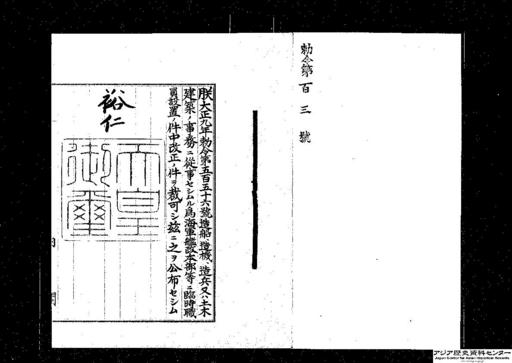 勅令第百三號
朕大正九年勅令第五百五十六號造船、造機、造兵又ハ土木
建築ノ事務ニ從事セシムル爲海軍艦政本部等ニ臨時職
員設置ノ件中改正ノ件ヲ裁可シ茲ニ之ヲ公布セシム
裕仁
天皇
御璽
アジア歴史資料センター
Japan Center for Asian Historical Records